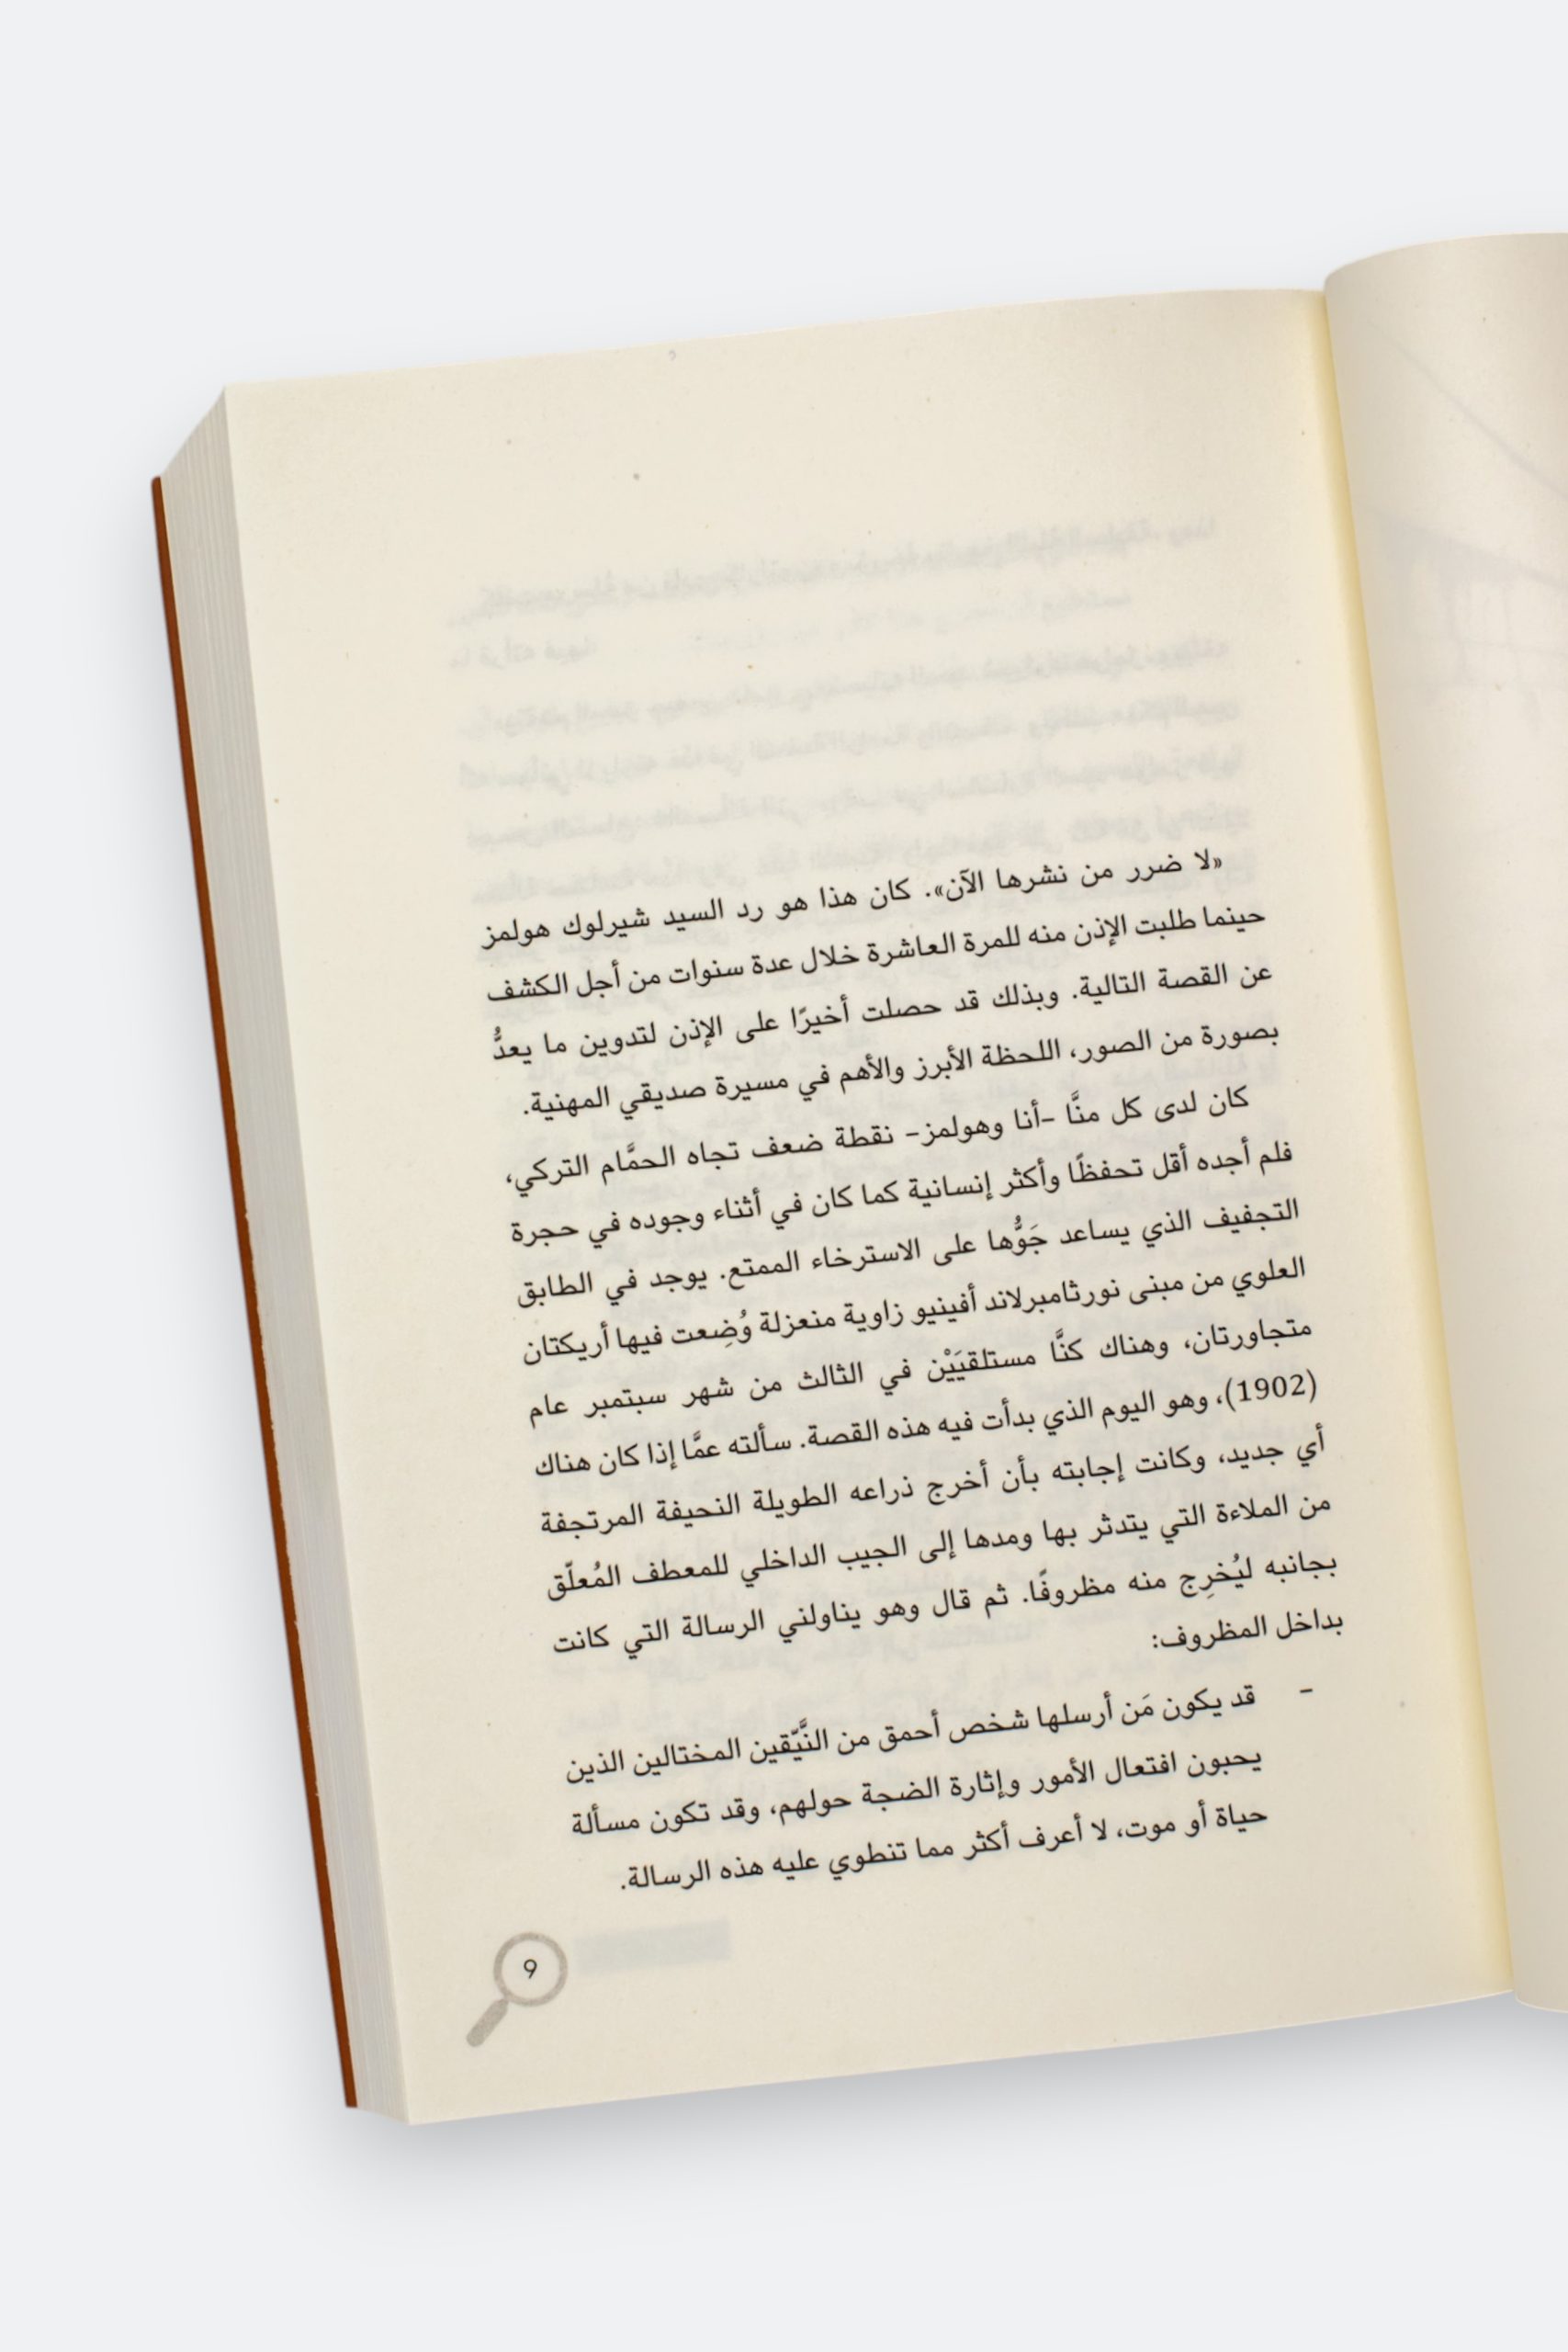 «لا ضرر من نشرها الآن». كان هذا هو رد السيد شيرلوك هولمز
حينما طلبت الإذن منه للمرة العاشرة خلال عدة سنوات من أجل الكشف
عن القصة التالية. وبذلك قد حصلت أخيرًا على الإذن لتدوين ما يعدُّ
بصورة من الصور، اللحظة الأبرز والأهم في مسيرة صديقي المهنية.
كان لدى كل منَّا -أنا وهولمز- نقطة ضعف تجاه الحمَّام التركي،
فلم أجده أقل تحفظًا وأكثر إنسانية كما كان في أثناء وجوده في حجرة
التجفيف الذي يساعد جَوُّها على الاسترخاء الممتع. يوجد في الطابق
العلوي من مبنى نورثامبرلاند أفينيو زاوية منعزلة وُضِعت فيها أريكتان
متجاورتان، وهناك كنَّا مستلقيَيْن في الثالث من شهر سبتمبر عام
(1902)، وهو اليوم الذي بدأت فيه هذه القصة. سألته عمَّا إذا كان هناك
أي جديد، وكانت إجابته بأن أخرج ذراعه الطويلة النحيفة المرتجفة
من الملاءة التي يتدثر بها ومدها إلى الجيب الداخلي للمعطف المُعلّق
بجانبه ليُخرِج منه مظروفًا. ثم قال وهو يناولني الرسالة التي كانت
بداخل المظروف:
- قد يكون مَن أرسلها شخص أحمق من النَّيّقين المختالين الذين
يحبون افتعال الأمور وإثارة الضجة حولهم، وقد تكون مسألة
حياة أو موت، لا أعرف أكثر مما تنطوي عليه هذه الرسالة.
9